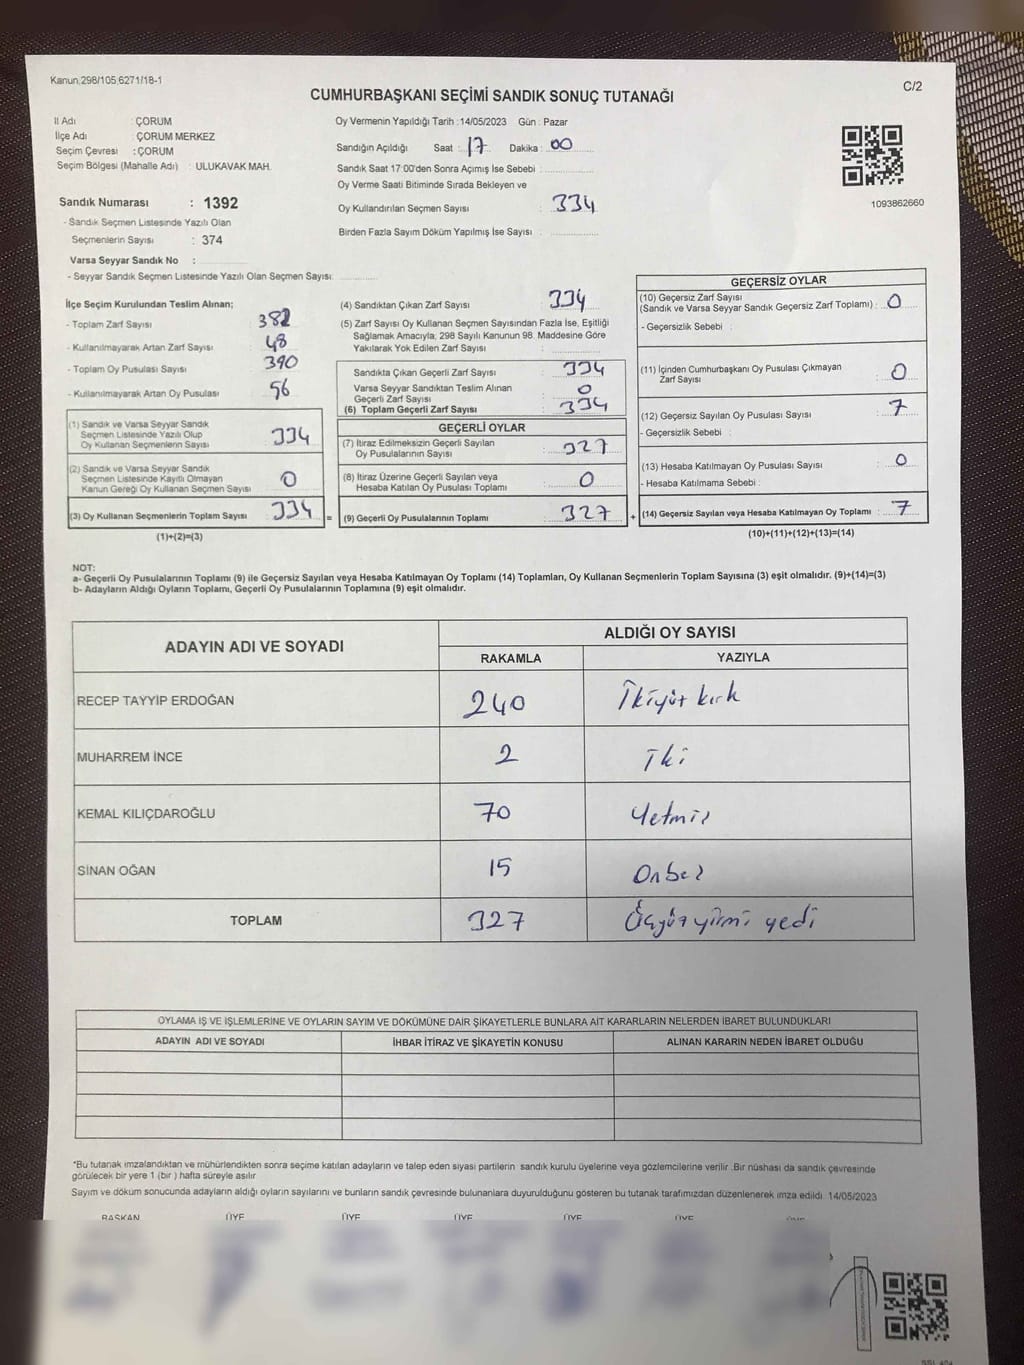 Kanun,298/105,6271/18-1
C/2
CUMHURBAŞKANI SEÇİMİ SANDIK SONUÇ TUTANAĞI
İl Adı : ÇORUM
İlçe Adı : ÇORUM MERKEZ
Seçim Çevresi : ÇORUM
Seçim Bölgesi (Mahalle Adı) : ULUKAVAK MAH.
Oy Vermenin Yapıldığı Tarih :14/05/2023 Gün : Pazar
Sandığın Açıldığı Saat : 17 Dakika : 00
Sandık Saat 17:00'den Sonra Açımış İse Sebebi :
Oy Verme Saati Bitiminde Sırada Bekleyen ve
Oy Kullandırılan Seçmen Sayısı : 334
Birden Fazla Sayım Döküm Yapılmış İse Sayısı :
1093862660
Sandık Numarası : 1392
- Sandık Seçmen Listesinde Yazılı Olan
Seçmenlerin Sayısı : 374
Varsa Seyyar Sandık No :
- Seyyar Sandık Seçmen Listesinde Yazılı Olan Seçmen Sayısı:
İlçe Seçim Kurulundan Teslim Alınan;
- Toplam Zarf Sayısı : 382
- Kullanılmayarak Artan Zarf Sayısı : 48
- Toplam Oy Pusulası Sayısı : 390
- Kullanılmayarak Artan Oy Pusulası : 56
(1) Sandık ve Varsa Seyyar Sandık
Seçmen Listesinde Yazılı Olup
Oy Kullanan Seçmenlerin Sayısı : 334
(2) Sandık ve Varsa Seyyar Sandık
Seçmen Listesinde Kayıtlı Olmayan
Kanun Gereği Oy Kullanan Seçmen Sayısı : 0
(3) Oy Kullanan Seçmenlerin Toplam Sayısı : 334 =
(1)+(2)=(3)
(4) Sandıktan Çıkan Zarf Sayısı : 334
(5) Zarf Sayısı Oy Kullanan Seçmen Sayısından Fazla İse, Eşitliği
Sağlamak Amacıyla; 298 Sayılı Kanunun 98. Maddesine Göre
Yakılarak Yok Edilen Zarf Sayısı :
Sandıkta Çıkan Geçerli Zarf Sayısı : 334
Varsa Seyyar Sandıktan Teslim Alınan
Geçerli Zarf Sayısı : 0
(6) Toplam Geçerli Zarf Sayısı : 334
GEÇERLİ OYLAR
(7) İtiraz Edilmeksizin Geçerli Sayılan
Oy Pusulalarının Sayısı : 327
(8) İtiraz Üzerine Geçerli Sayılan veya
Hesaba Katılan Oy Pusulası Toplamı : 0
(9) Geçerli Oy Pusulalarının Toplamı : 327 +
GEÇERSİZ OYLAR
(10) Geçersiz Zarf Sayısı
(Sandık ve Varsa Seyyar Sandık Geçersiz Zarf Toplamı) : 0
- Geçersizlik Sebebi :
(11) İçinden Cumhurbaşkanı Oy Pusulası Çıkmayan
Zarf Sayısı : 0
(12) Geçersiz Sayılan Oy Pusulası Sayısı : 7
- Geçersizlik Sebebi :
(13) Hesaba Katılmayan Oy Pusulası Sayısı : 0
- Hesaba Katılmama Sebebi :
(14) Geçersiz Sayılan veya Hesaba Katılmayan Oy Toplamı : 7
(10)+(11)+(12)+(13)=(14)
NOT:
a- Geçerli Oy Pusulalarının Toplamı (9) ile Geçersiz Sayılan veya Hesaba Katılmayan Oy Toplamı (14) Toplamları, Oy Kullanan Seçmenlerin Toplam Sayısına (3) eşit olmalıdır. (9)+(14)=(3)
b- Adayların Aldığı Oyların Toplamı, Geçerli Oy Pusulalarının Toplamına (9) eşit olmalıdır.
ADAYIN ADI VE SOYADI
ALDIĞI OY SAYISI
RAKAMLA YAZIYLA
RECEP TAYYİP ERDOĞAN 240 İkiyüz kırk
MUHARREM İNCE 2 İki
KEMAL KILIÇDAROĞLU 70 Yetmiş
SİNAN OĞAN 15 Onbeş
TOPLAM 327 Üçyüz yirmi yedi
OYLAMA İŞ VE İŞLEMLERİNE VE OYLARIN SAYIM VE DÖKÜMÜNE DAİR ŞİKAYETLERLE BUNLARA AİT KARARLARIN NELERDEN İBARET BULUNDUKLARI
ADAYIN ADI VE SOYADI İHBAR İTİRAZ VE ŞİKAYETİN KONUSU ALINAN KARARIN NEDEN İBARET OLDUĞU
*Bu tutanak imzalandıktan ve mühürlendikten sonra seçime katılan adayların ve talep eden siyasi partilerin sandık kurulu üyelerine veya gözlemcilerine verilir .Bir nüshası da sandık çevresinde
görülecek bir yere 1 (bir ) hafta süreyle asılır
Sayım ve döküm sonucunda adayların aldığı oyların sayılarını ve bunların sandık çevresinde bulunanlara duyurulduğunu gösteren bu tutanak tarafımızdan düzenlenerek imza edildi 14/05/2023
BAŞKAN ÜYE ÜYE ÜYE ÜYE ÜYE ÜYE